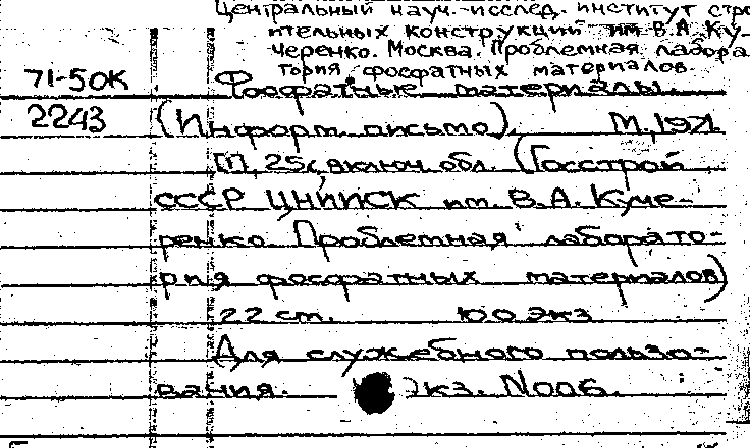 Центральный науч.-исслед. институт стро
ительных конструкций им В.А. Ку-
черенко. Москва. Проблемная лабора
тория фосфатных материалов.
71-50К Фосфатные материалы.
2243 (Информ. письмо). М, 1971
25с включ обл. (Госстрой
СССР ЦНИИСК им. В.А. Куче-
ренко. Проблемная лаборато-
рия фосфатных материалов)
22 см. 100 экз
Для служебного пользо-
вания. Экз. N006.